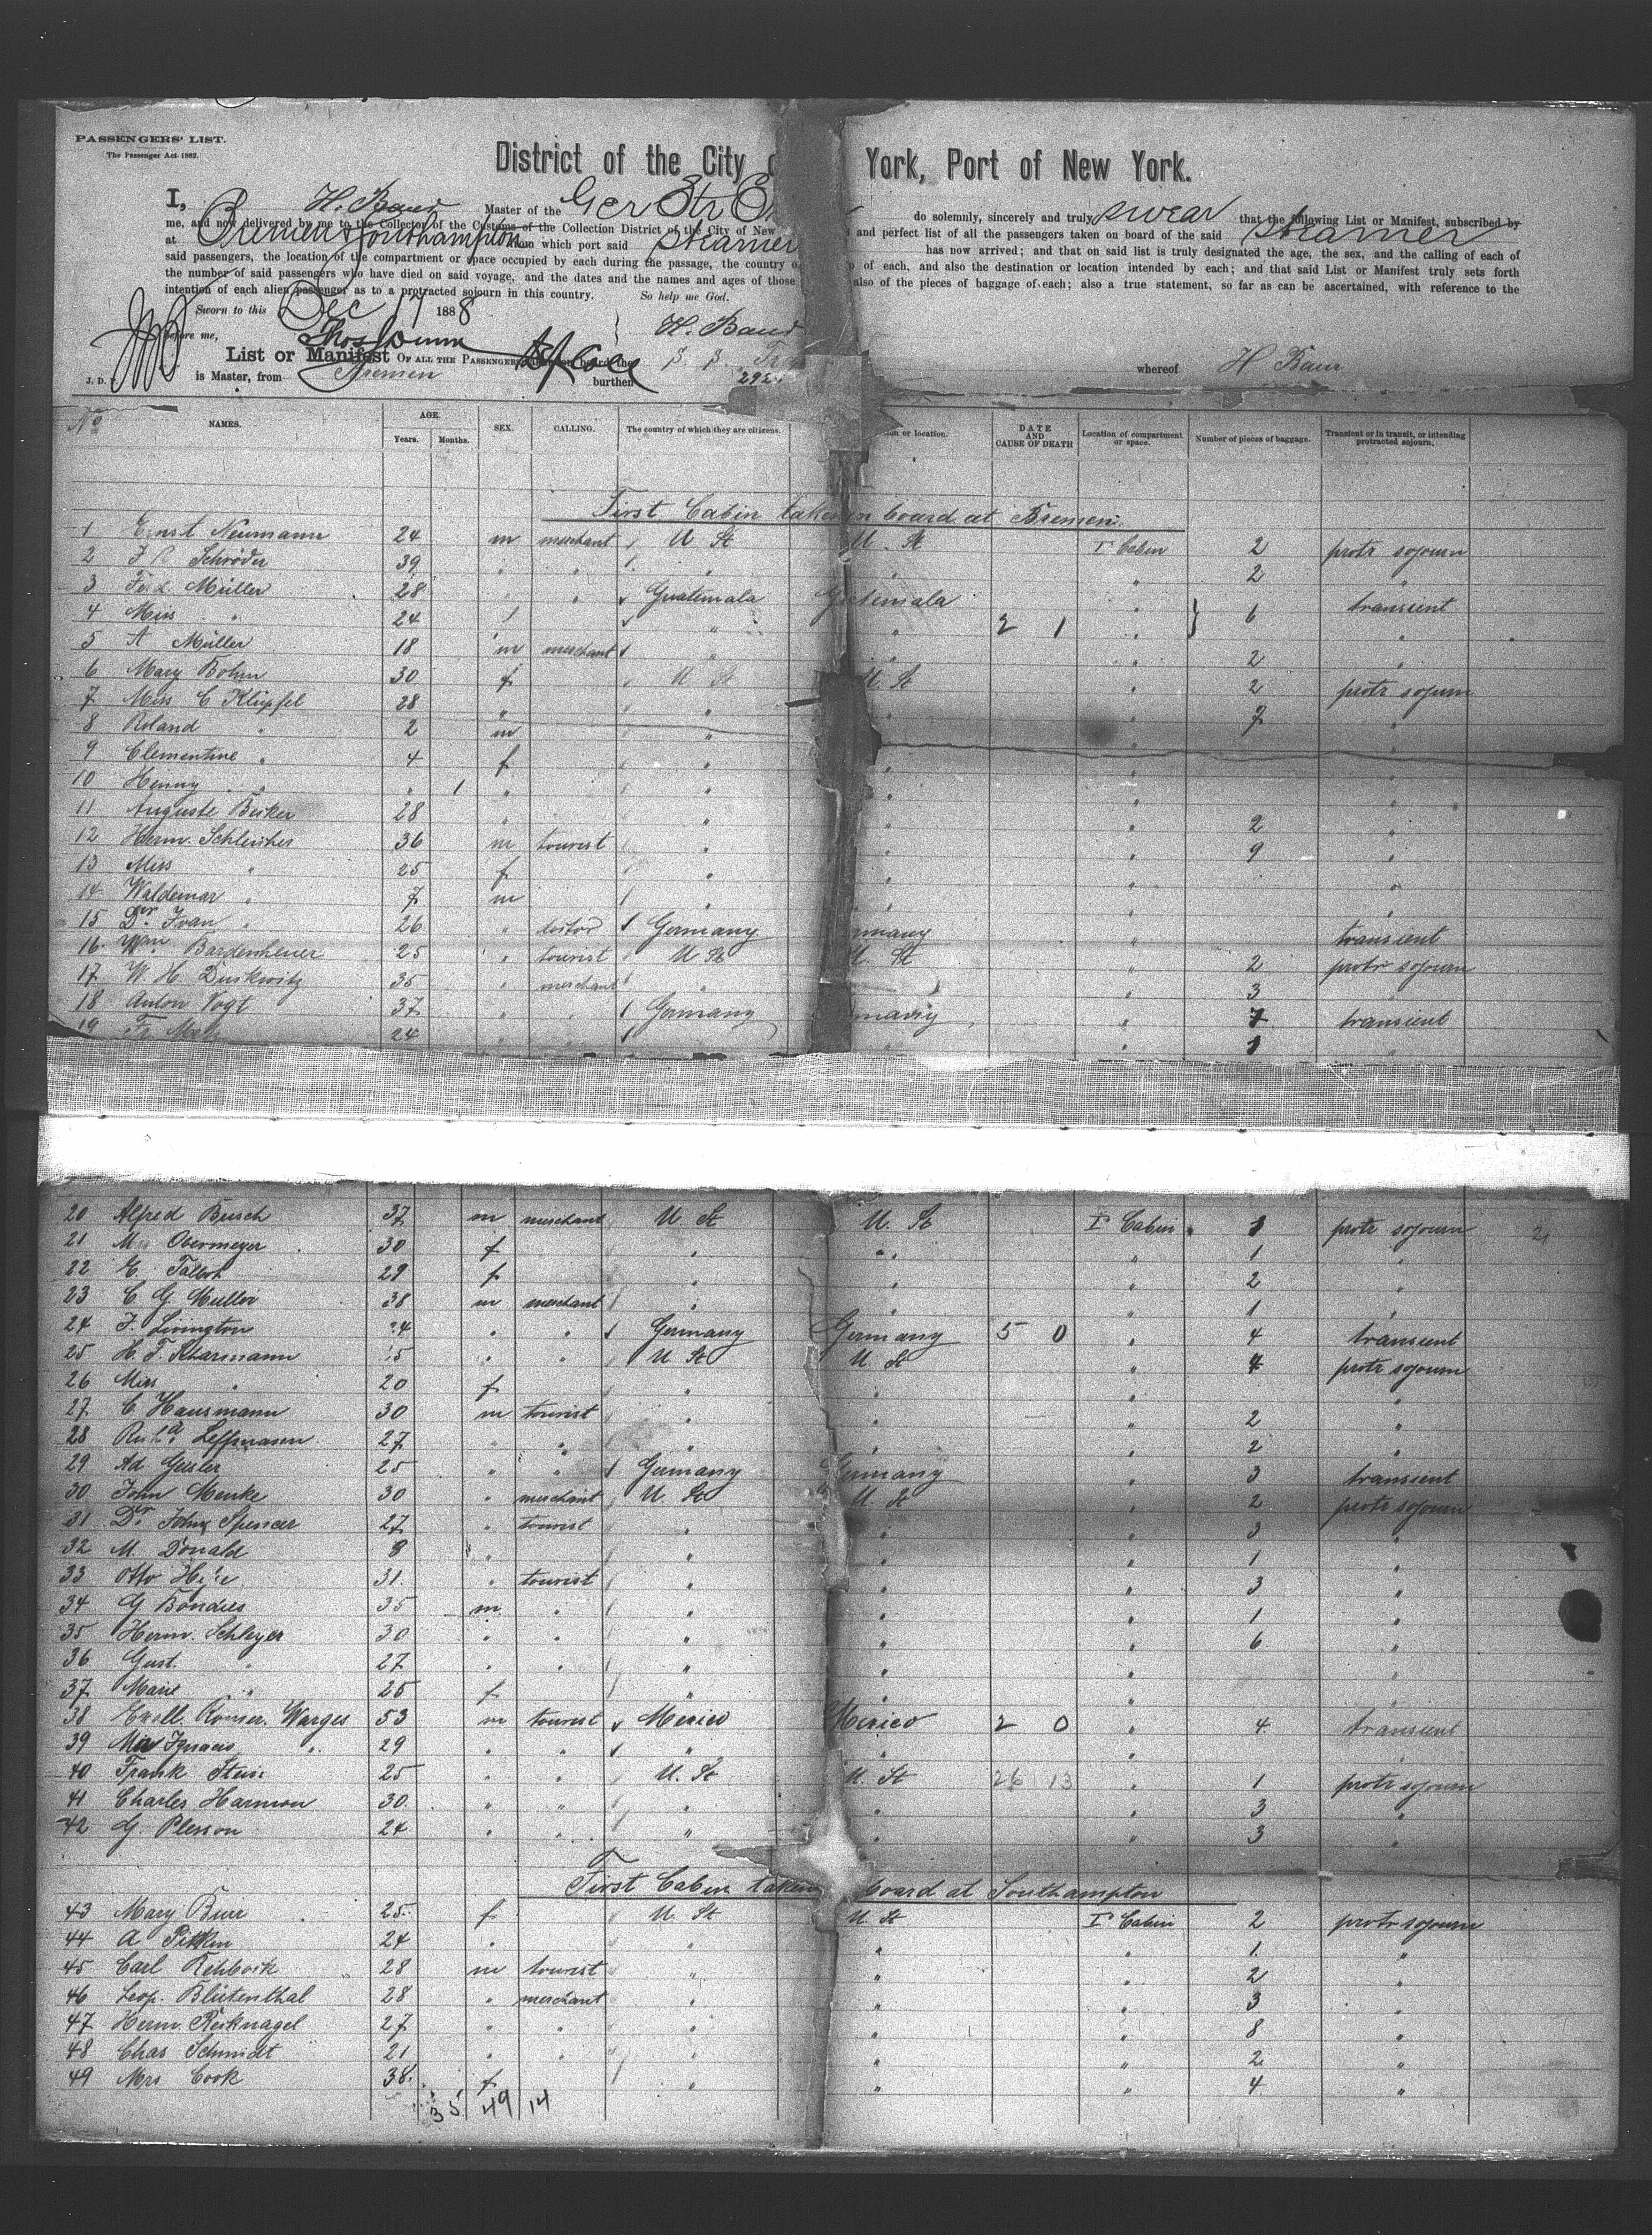 PASSENGERS' LIST.
The Passenger Act 1882.
District of the City York, Port of New York.
I, H. Baur Master of the Ger Str do solemnly, sincerely and truly swear that the following List or Manifest, subscribed by
me, and now delivered by me to the Collector of the Customs of the Collection District of the City of New and perfect list of all the passengers taken on board of the said steamer
at Bremen & Southampton from which port said steamer has now arrived; and that on said list is truly designated the age, the sex, and the calling of each of
said passengers, the location of the compartment or space occupied by each during the passage, the country of each, and also the destination or location intended by each; and that said List or Manifest truly sets forth
the number of said passengers who have died on said voyage, and the dates and the names and ages of those also of the pieces of baggage of each; also a true statement, so far as can be ascertained, with reference to the
intention of each alien passenger as to a protracted sojourn in this country. So help me God.
Sworn to this Dec 17 1888
before me, H. Baur
List or Manifest OF ALL THE PASSENGERS whereof H Baur
is Master, from Bremen burthen
No NAMES. AGE. Years. Months. SEX. CALLING. The country of which they are citizens. or location. DATE AND CAUSE OF DEATH Location of compartment or space. Number of pieces of baggage. Transient or in transit, or intending protracted sojourn.
First Cabin taken on board at Bremen.
1 Ernst Neumann 24 m merchant U St U. St I Cabin 2 protr sojourn
2 Schröder 39 " " " " " 2 "
3 Ferd. Müller 28 " " Guatemala Guatemala " 6 transient
4 Miss " 24 " " 2 1 " "
5 A Müller 18 m merchant " " " 2 "
6 Mary Bohm 30 f U St U. St " 2 protr sojourn
7 Miss C Klüpfel 28 " " " 7 "
8 Roland " 2 m "
9 Clementine " 4 f " " "
10 Henny " " 1 " " " " "
11 Auguste Beiker 28 " " " " 2 "
12 Herm. Schleicher 36 m tourist " " " 9 "
13 Miss " 25 f " " " "
14 Waldemar " 7 m " " "
15 Dr. Ivan " 26 " doctor Germany rmany " transient
16 Wm Bardenheuer 25 " tourist U St U. St " 2 protr sojourn
17 W. H. Duskwitz 35 " merchant " " 3 "
18 Anton Vogt 37 " " Germany many " 7 transient
19 24 " 1 "
20 Alfred Busch 37 m merchant U St U. St I Cabin 1 protr sojourn 21
21 Obermeyer 30 f " " " 1 "
22 E. Talbot 29 f " " " 2 "
23 C G Muller 38 m merchant " " " 1 "
24 J. Livington " " Germany Germany 5 0 " 4 transient
25 H. F. Kharmann " " U St U St " 4 protr sojourn
26 Miss " 20 f " " " "
27 C Hausmann 30 m tourist " " " 2 "
28 Leffmann 27 " " " " " 2 "
29 Ad Geisler 25 " " Germany Germany " 3 transient
30 John Menke 30 " merchant U. St U. St " 2 protr sojourn
31 Dr John Spencer 27 " tourist " " " 3 "
32 M. Donald 8 " " " " 1 "
33 Otto 31. " tourist " " " 3 "
34 G Bondies 35 m " " " " 1 "
35 Herm. Schleyer 30 " " " " " 6 "
36 Gust. " 27 " " " " "
37 Marie " 25 f " " "
38 Warges 53 m tourist Mexico Mexico 2 0 " 4 transient
39 Ignacio " 29 " " " " "
40 Frank 25 " " U. St U. St 26 13 " 1 protr sojourn
41 Charles Harmon 30 " " " " " 3 "
42 G. Plesson 24 " " " " " 3 "
First Cabin taken board at Southampton
43 Mary Burr 25 f U. St U St I Cabin 2 protr sojourn
44 A Pitkin 24 " " " " 1 "
45 Carl Rehbock 28 m tourist " " " 2 "
46 Leop. Blütenthal 28 " merchant " " " 3 "
47 Herm. Reiknagel 27 " " " " " 8 "
48 Chas Schmidt 21 " " " " " 2 "
49 Mrs Cook 38 f " " " 4 "
35 49 14